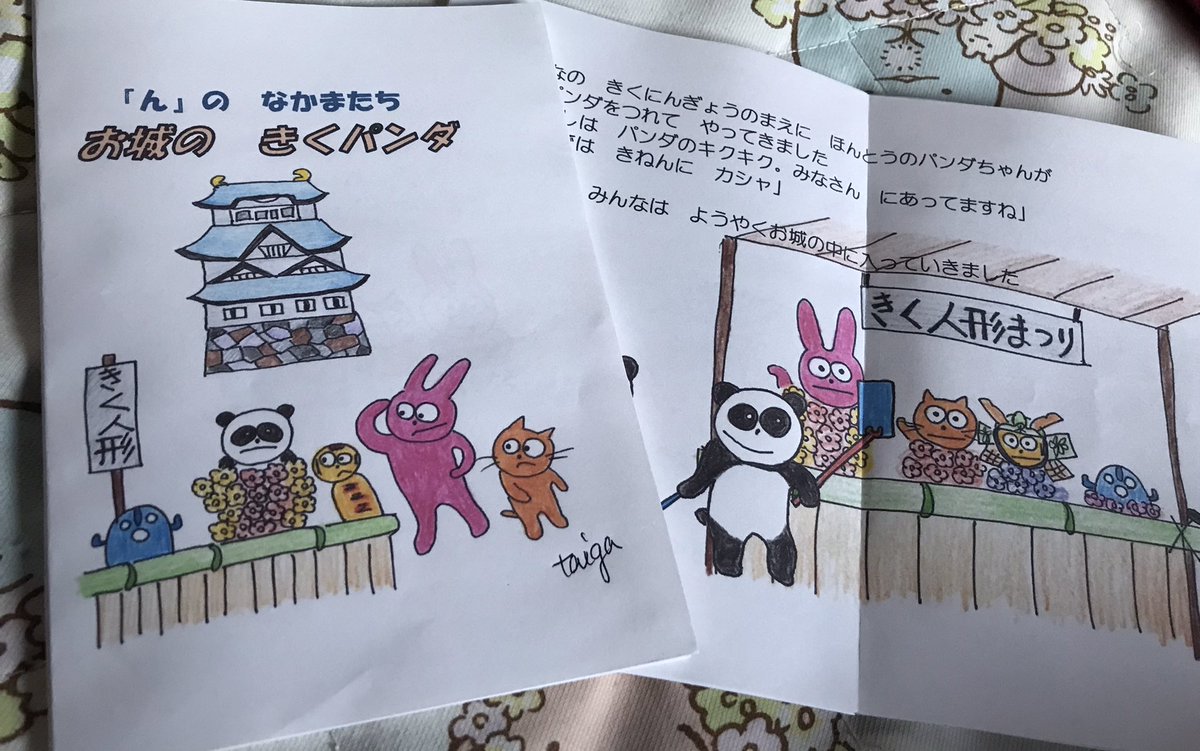 「ん」の なかまたち
お城の きくパンダ
きく人形
taiga
の きくにんぎょうのまえに ほんとうのパンダちゃんが
をつれて やってきました
は パンダのキクキク。みなさん にあってますね」
は きねんに カシャ」
みんなは ようやくお城の中に入っていきました
きく人形まつり